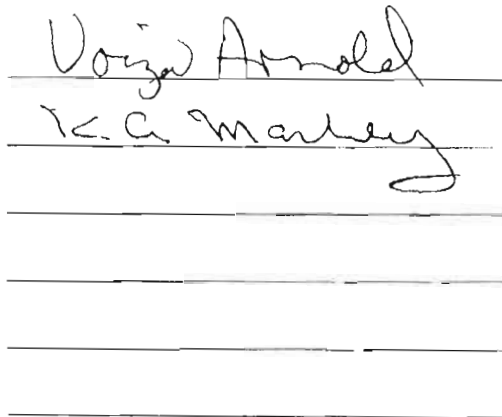 Voiza Arnold
K. A. Markey